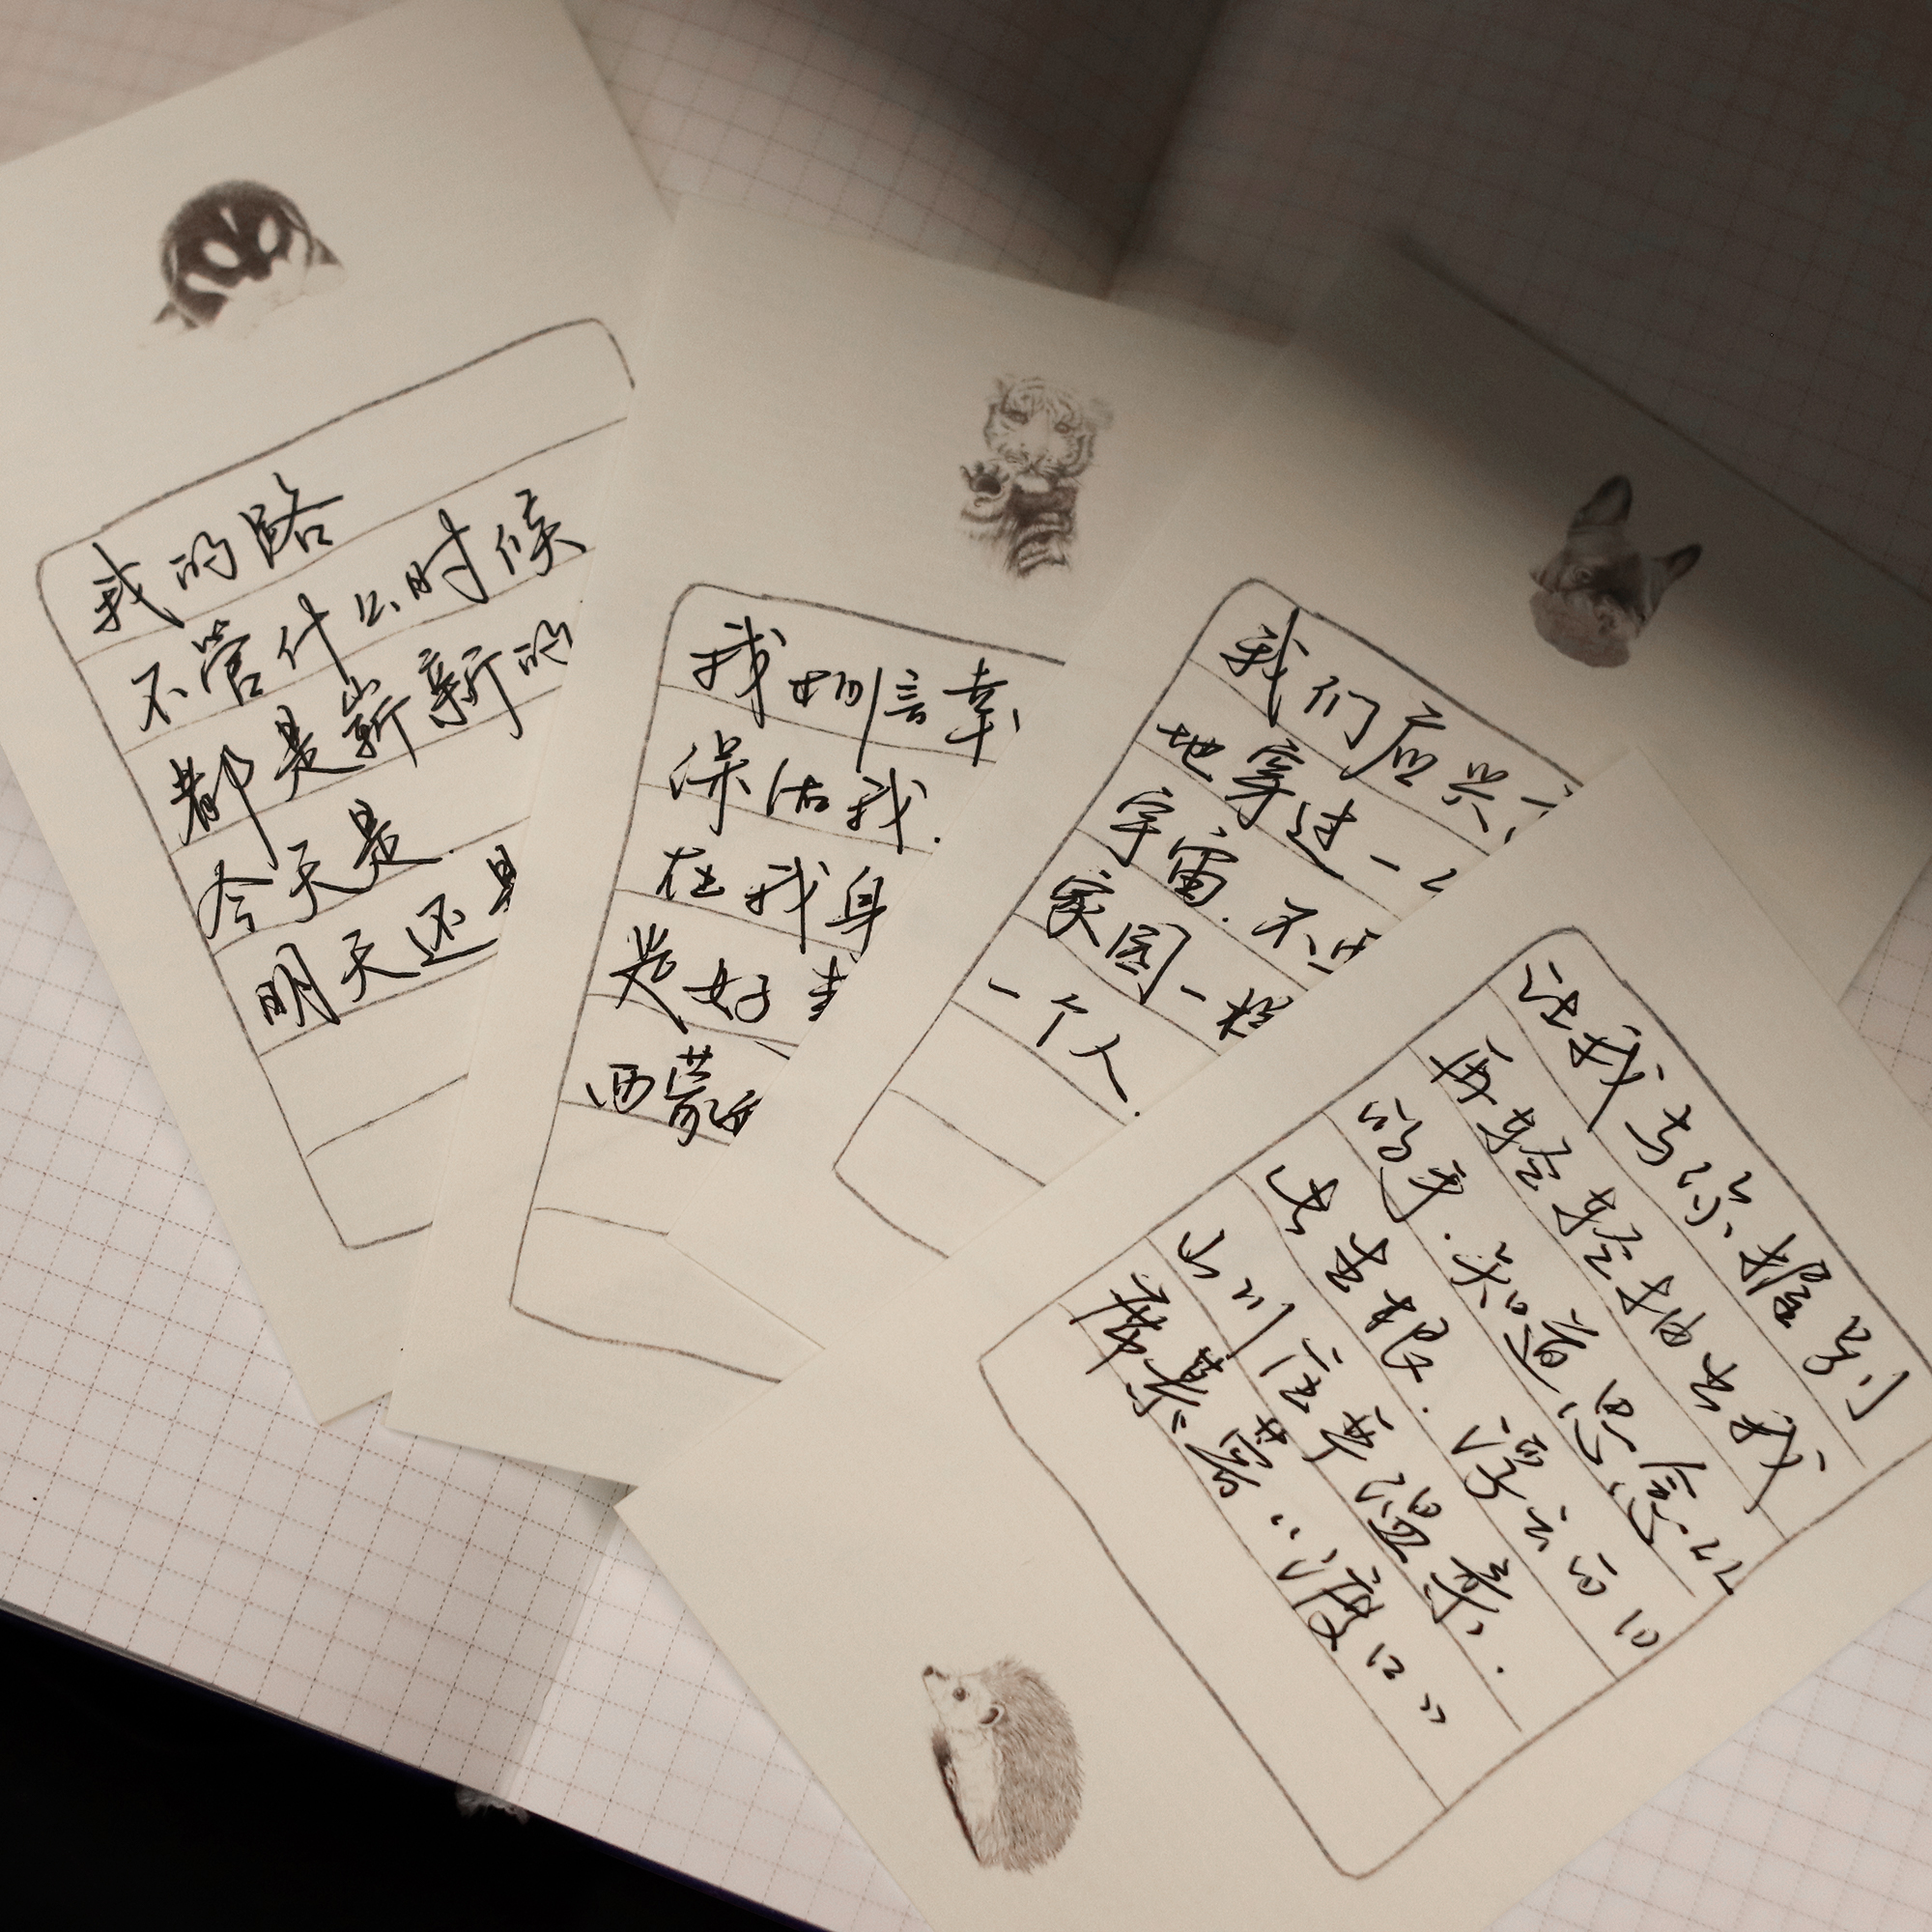 我的路
不管什么时候
都是崭新的
今天是
明天还是
我相信幸
保佑我.
在我身
是好
西蒙
我们应兴
地穿过一
宇宙.不
家园一样
一个人.
让我与你握别
再轻轻抽出我
的手.知道思念从
此生根.浮云白日
山川庄严温柔.
席慕蓉“渡口”